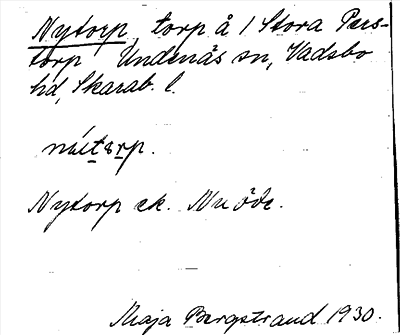 Nytorp, torp å 1 Stora Pers-
torp Undenäs sn, Vadsbo
hd, Skarab. l.
Nytorp ek. Nu öde.
Maja Bergstrand 1930.